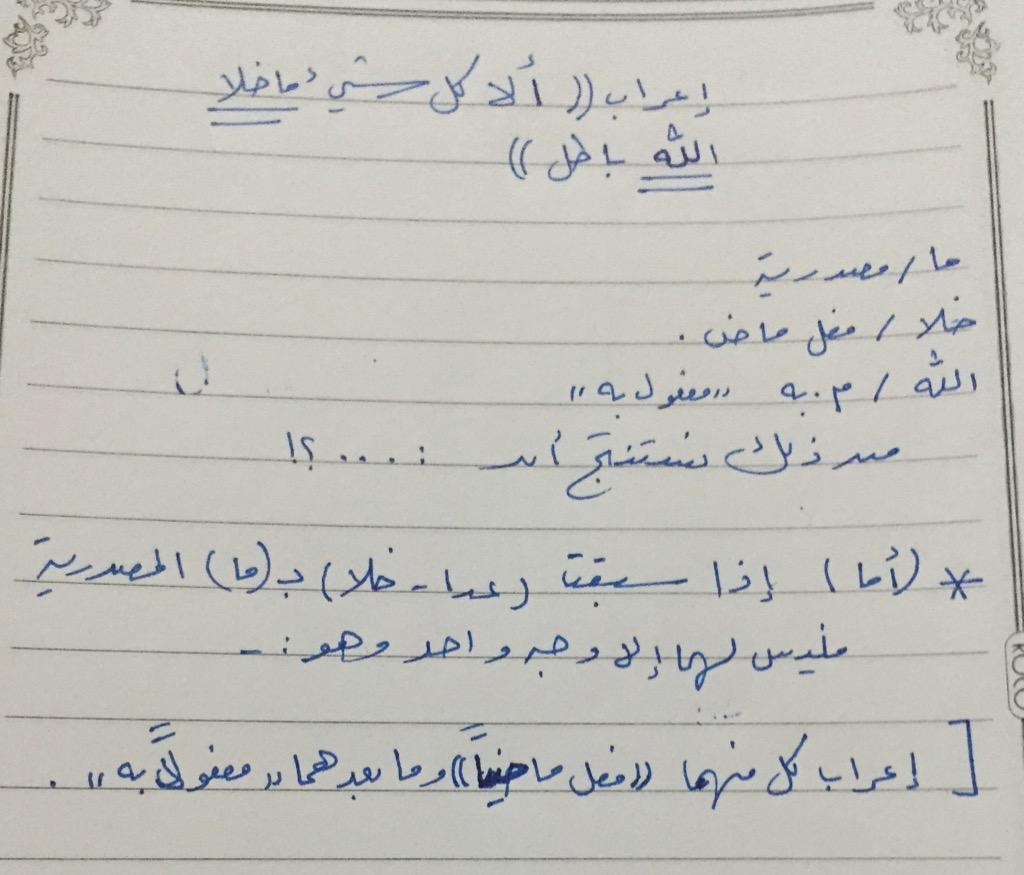 إعراب (( ألا كل شيءٍ ما خلا
الله باطل ))
ما / مصدرية
خلا / فعل ماض .
الله / م . به " مفعول به "
من ذلك نستنتج أن : .... ؟!
* (أما) إذا سبقت (عدا - خلا) بـ (ما) المصدرية
فليس لهما إلا وجه واحد وهو : -
[ إعراب كل منهما (( فعل ماضياً )) وما بعدهما " مفعولاً به " .